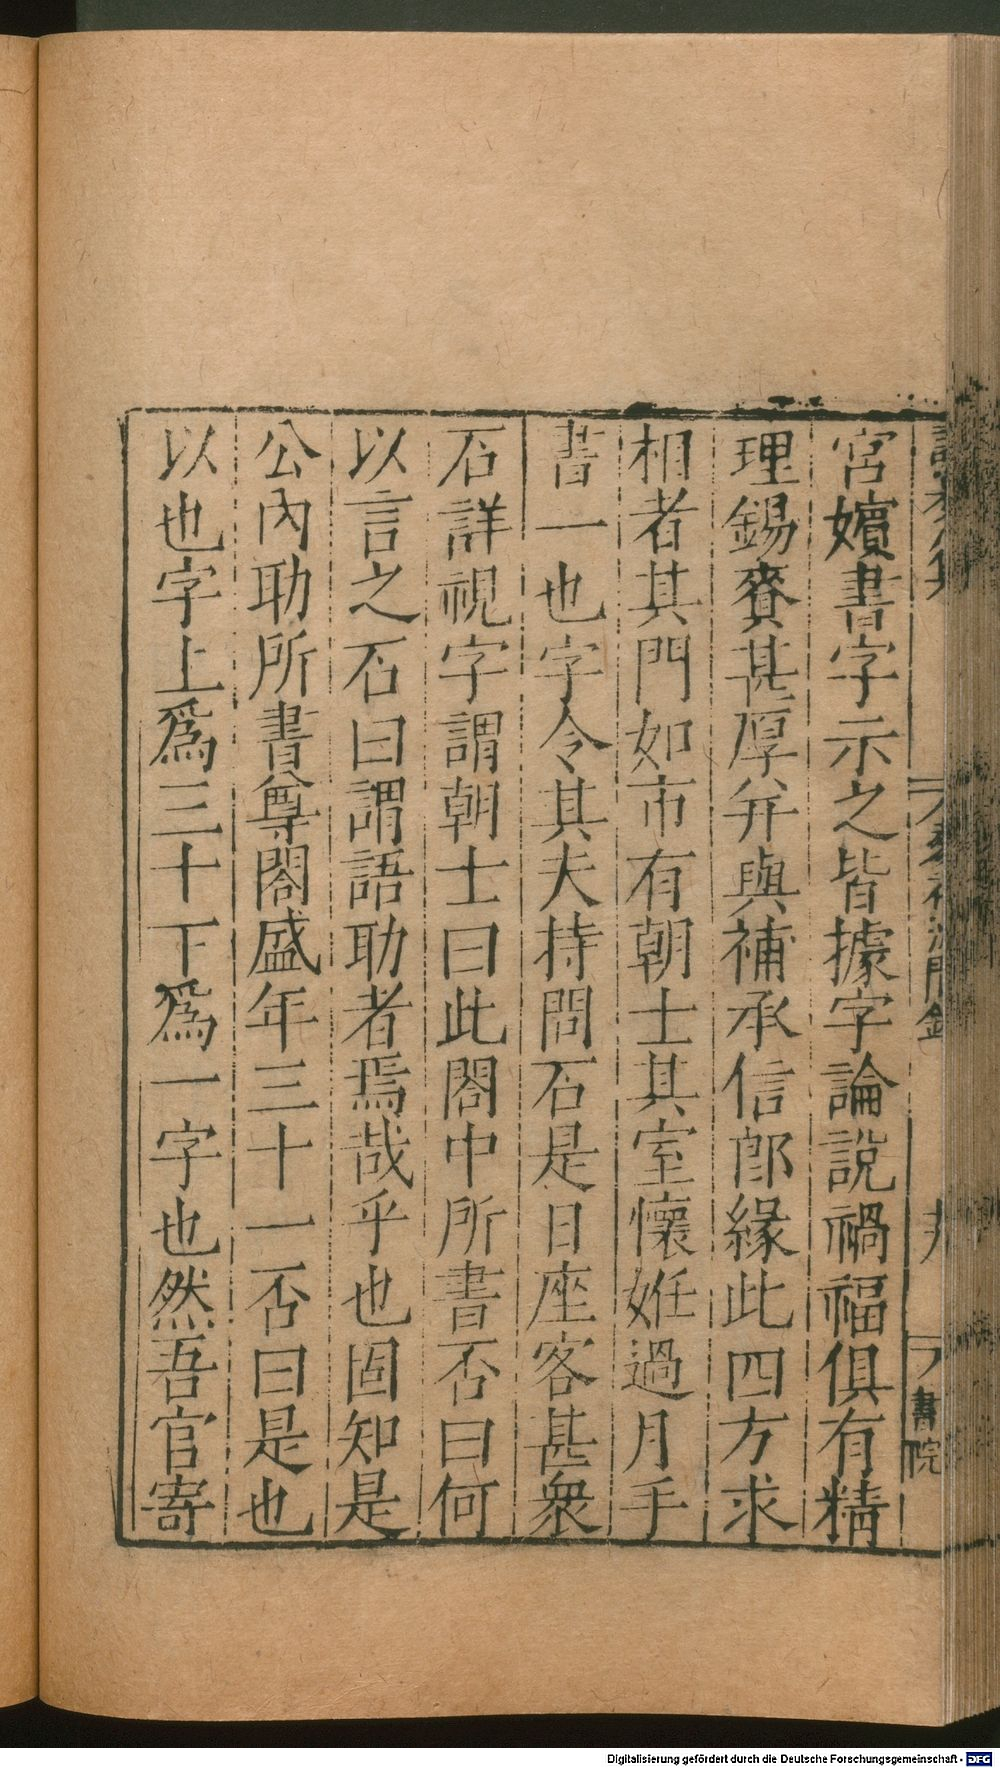 宮嬪書字示之皆據字論說禍福俱有精
理錫賚甚厚并與補承信郎緣此四方求
相者其門如市有朝士其室懷姙過月手
書一也字令其夫持問石是日座客甚衆
石詳視字謂朝士曰此閤中所書否曰何
以言之石曰謂語助者焉哉乎也固知是
公內助所書尊閤盛年三十一否曰是也
以也字上爲三十下爲一字也然吾官寄
書院
Digitalisierung gefördert durch die Deutsche Forschungsgemeinschaft - DFG